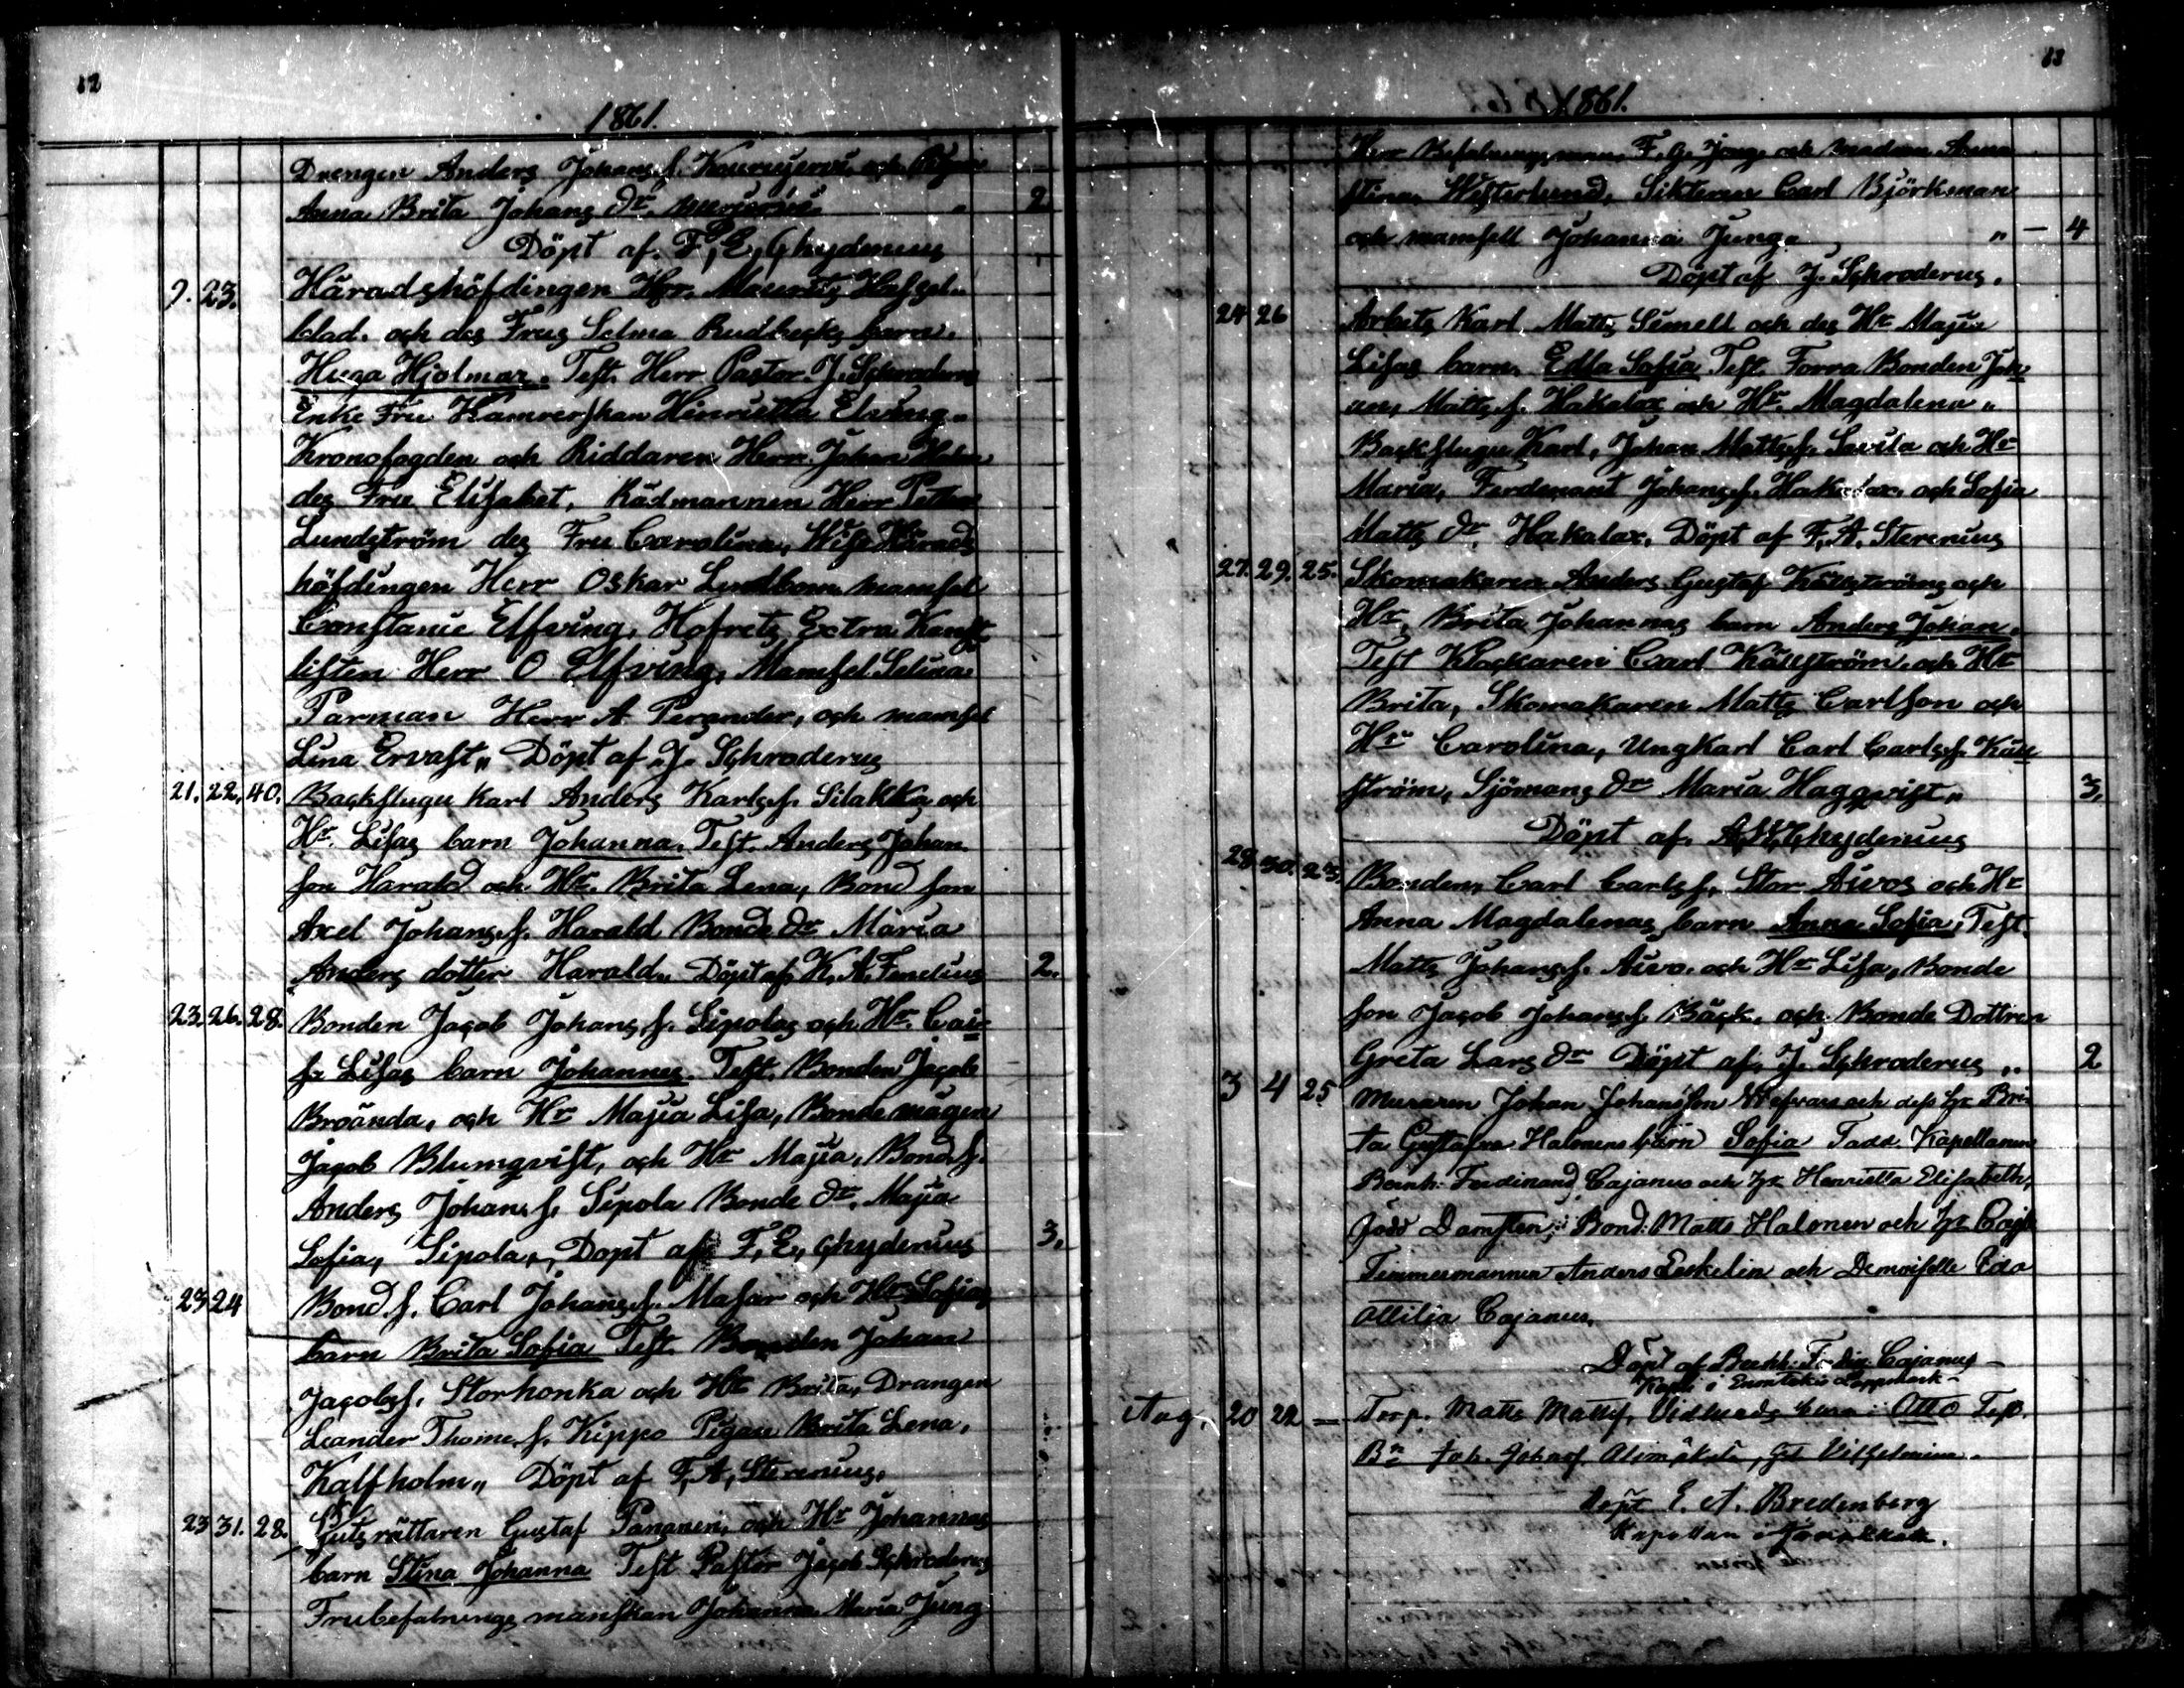 12
1861.
Drengen Anders Johans.s. och Pigan
Anna Brita Johans dr. " 2
Döpt af. F, E, Chydenius
9. 23. Häradshöfdingen Herr. Mauritz Hassel-
blad. och des Frus Selma Rudbecks barn.
Hugo Hjalmar. Test. Herr Pastor J. Schroderus
Enke Fru Kamrerskan Henrietta Elving.
Kronofogden och Riddaren Herr Johan
des Fru Elisabet, Rådmannen Herr Petter
Lundström des Fru Carolina, Wise Härads
höfdingen Herr Oskar Lindbom mamsel
Constance Elfving, Hofretz Extra Kansl
listen Herr O Elfving, Mamsel Selina
Parman Herr A Perander, och mamsel
Lina Ervast,, Döpt af J. Schroderus
21. 22. 40. Backstugu karl Anders Karls.s. Silakka och
Hr. Lisas barn Johanna, Test. Anders Johan
son Harald och Hr. Brita Lena, Bond son
Axel Johans.s. Harald Bonde dr Maria
Anders dotter Harald,, Döpt af K. A. Fenelius 2.
23. 26. 28. Bonden Jacob Johans.s. Sipolas och Hr. Cai-
sa Lisas barn Johannes Test. Bonden Jacob
Broända, och Hr Majia Lisa, Bonde mågen
Jacob Blumqvist, och Hr Majia, Bond.s.
Anders Johans s. Sipola Bonde dr. Majia
Sofia, Sipola,, Döpt af F, E, Chydenius 3.
23 24 Bond.s. Carl Johans.s. Masar och Hr Sofias
barn Brita Sofia Test. Bonden Johan
Jacobs.s. Storhonka och Hr Brita, Drangen
Leander Thome.s. Kippo Pigan Brita Lena,
Kalfholm,, Döpt af F, A, Stenius.
23 31. 28. Gutsrättaren Gustaf Pananen, och Hr Johannas
barn Stina Johanna Test Pastor Jacob Schroderus
Frubefalnings manskan Johanna Maria Jung
13
1861.
Herr Befalningsman, F. G. Jung och madam Anna
Stina, Westerlund, Sikteren Carl Björkman
och mamsell Johanna Jung. " — 4
Döpt af J. Schroderus.
24 26 Arbets Karl Matts Simell och des Hr Majia
Lisas barn, Edla Sofia Test. Forra Bonden Joh
an, Matts.s. Hakalax och Hr. Magdalena,,
Backstugu Karl, Johan Matts.s. Savila och Hr
Maria, Ferdenant Johans.s. Hakalax, och Sofia
Matts dr. Hakalax, Döpt af F, A. Stenius
27. 29. 25. Skomakaren Anders Gustaf Källströms och
Hr. Brita Johannas barn Anders Johan.
Test Klockaren Carl Källström, och Hr
Brita, Skomakaren Matts Carlsson och
Hr Carolina, Ungkarl Carl Carls.s. Käll
ström, Sjömans dr Maria Haggqvist,, 3.
Döpt af. A, H, Chydenius
28. 30. 23. Bonden, Carl Carls.s. Stor Aivos och Hr
Anna Magdalenas barn Anna Sofia, Test.
Matts Johans.s. Aivo. och Hr Lisa, Bonde
son Jacob Johans.s Bäck, och Bonde Dottren
Greta Lars dr Döpt af, J. Schroderus ,, 2
3 4 25 Muraren Johan Johansson och dess hr Bri
ta Gustafva Halonens barn Sofia Fadd. Kapellanen
Bernh. Ferdinand Cajanus och hr Henrietta Elisabeth,
född Damsten; Bond. Matts Halonen och hr Cajs
Timmermannen Anders Eskelin och Demoiselle Ida
Ottilia Cajanus.
Döpt af Bernh. Ferdin. Cajanus
Kapel. i Enontekis Lappmark
Aug. 20 22 — Torp. Matts Matts.s. barn: Otto Test.
Bn Joh. Johans.s
Döpt E. A. Bredenberg